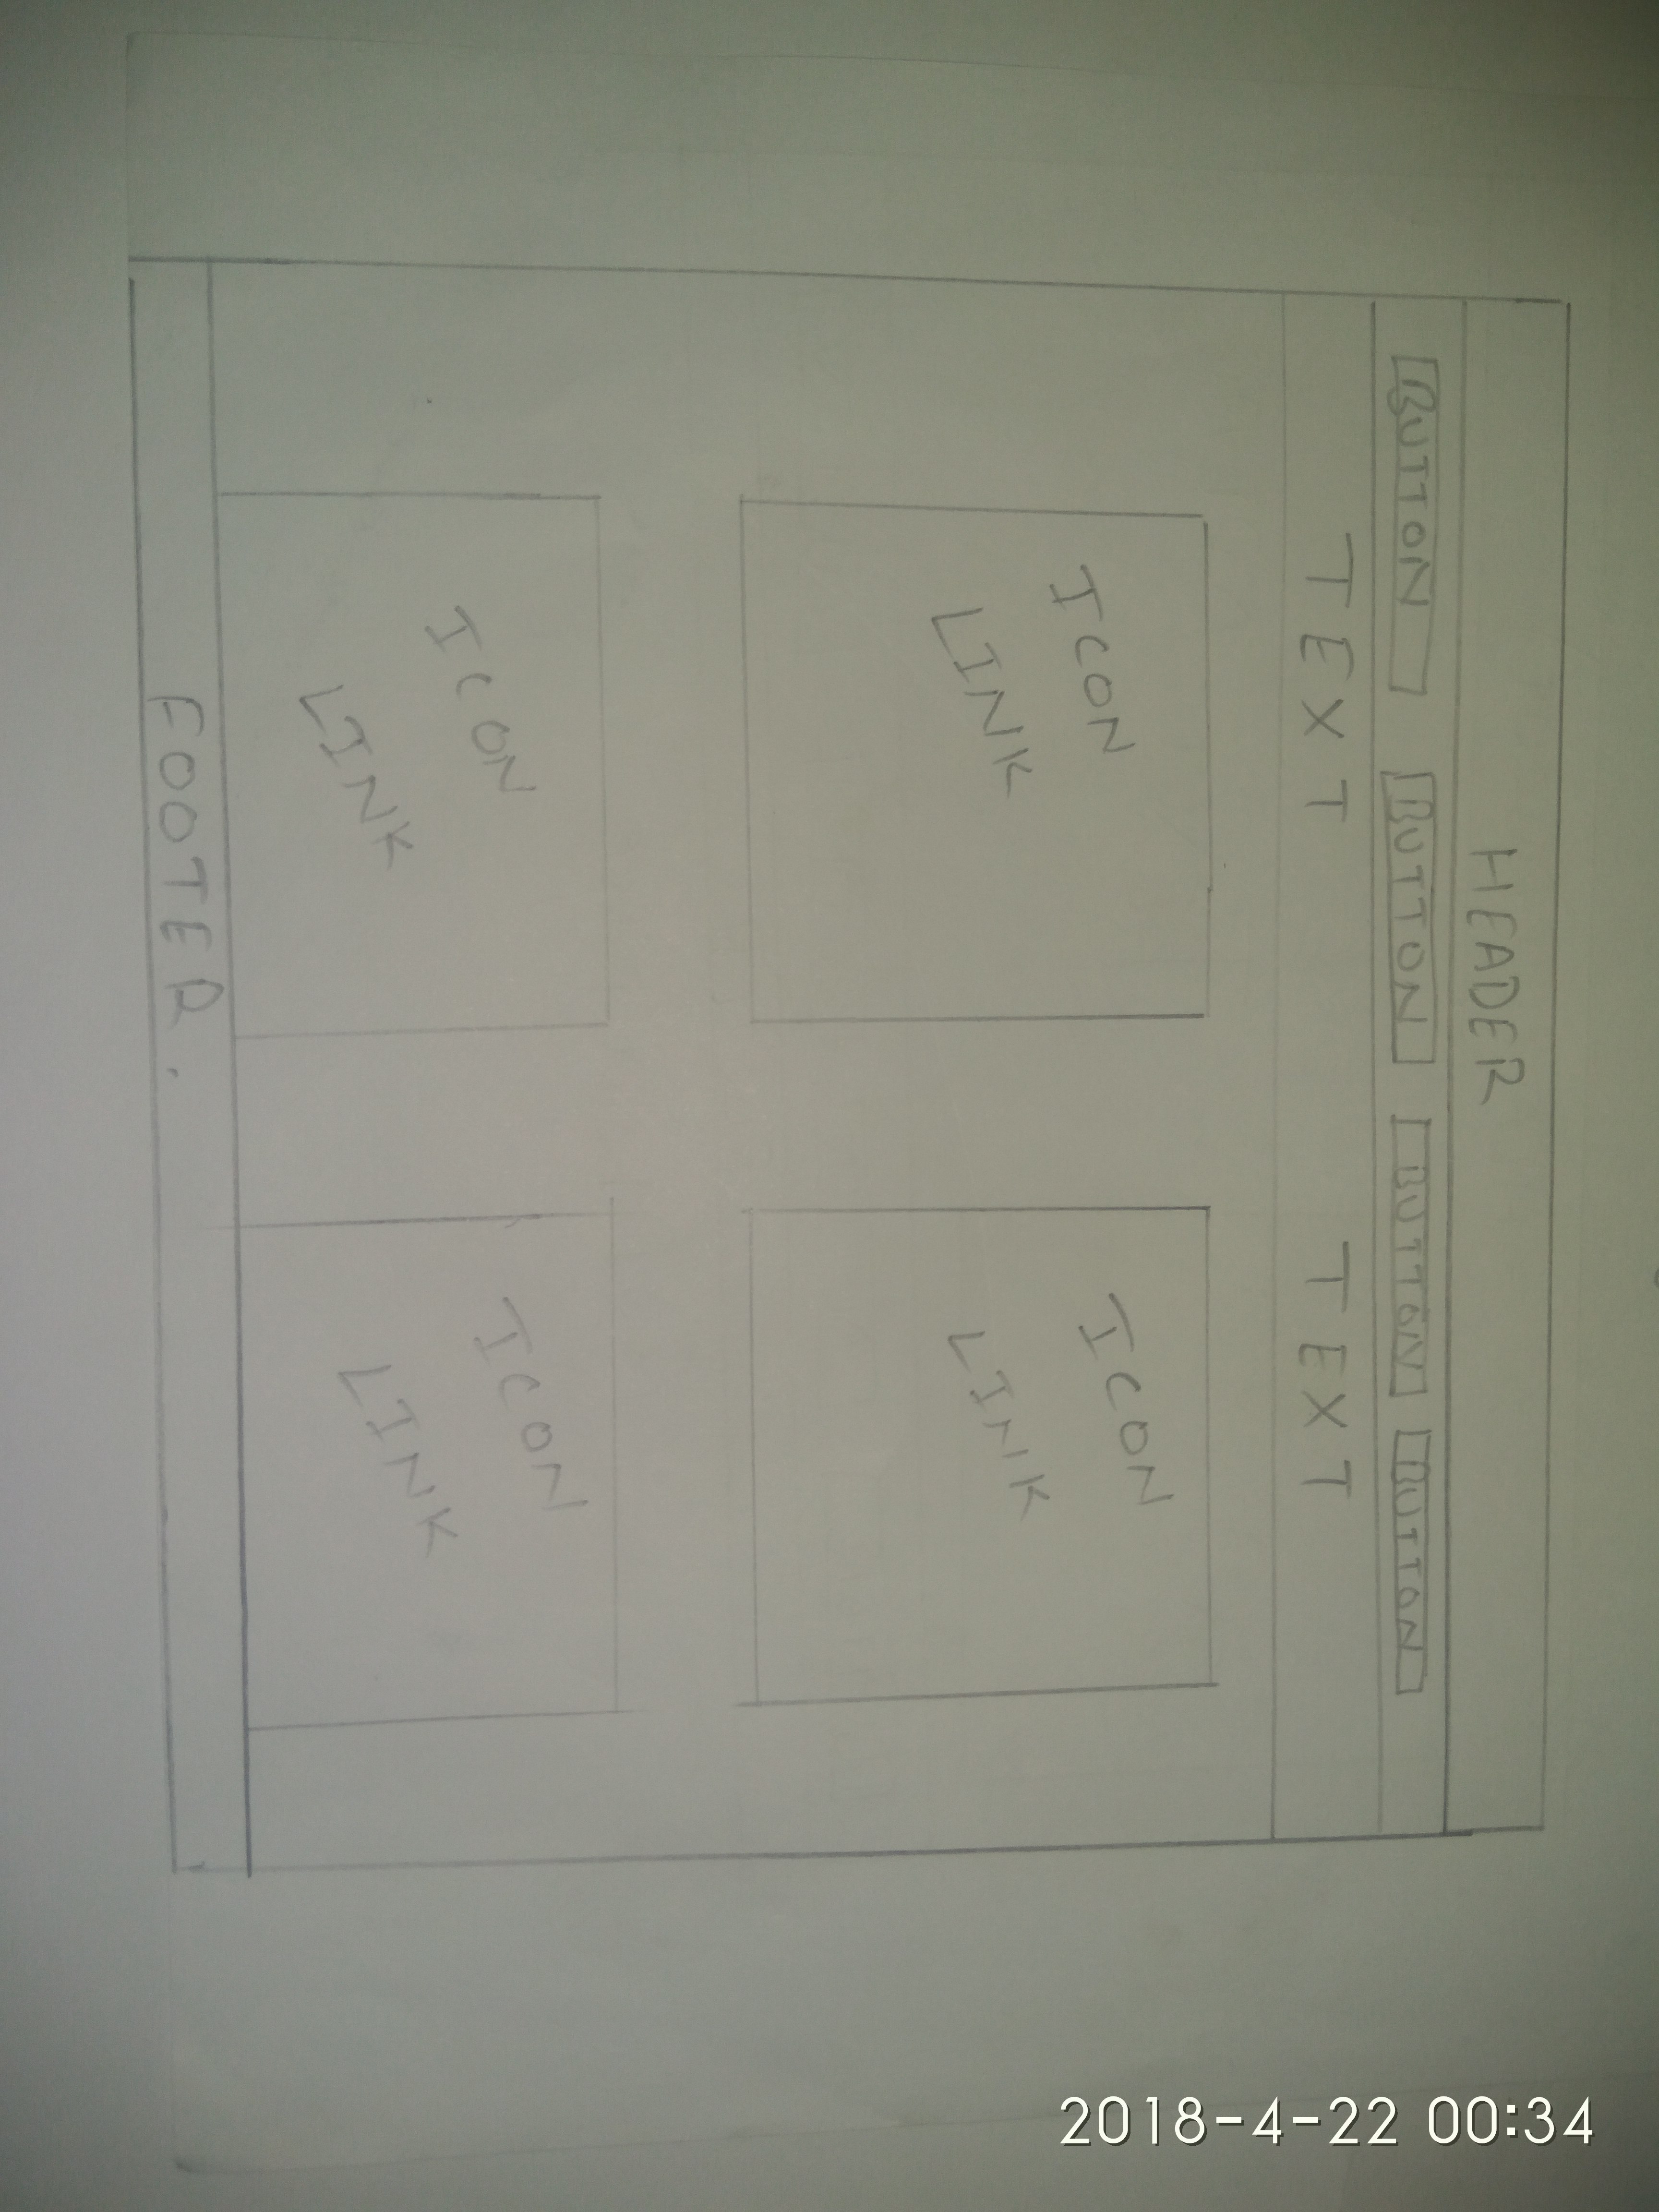 HEADER
BUTTON BUTTON BUTTON BUTTON
TEXT TEXT
ICON ICON
LINK LINK
ICON ICON
LINK LINK
FOOTER.
2018-4-22 00:34